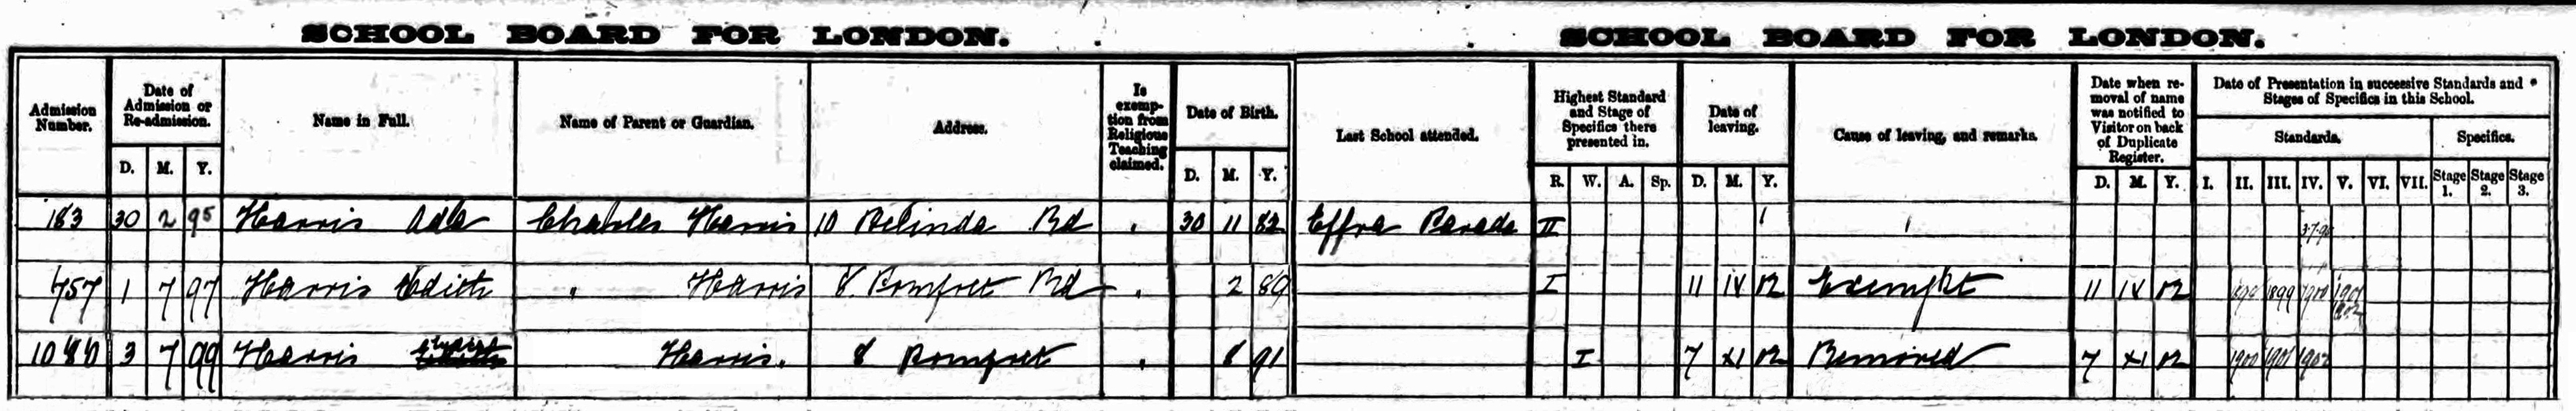 SCHOOL BOARD FOR LONDON. SCHOOL BOARD FOR LONDON.
Admission Number. Date of Admission or Re-admission. Name in Full. Name of Parent or Guardian. Address. Is exemption from Religious Teaching claimed. Date of Birth. Last School attended. Highest Standard and Stage of Specifics there presented in. Date of leaving. Cause of leaving, and remarks. Date when removal of name was notified to Visitor on back of Duplicate Register. Date of Presentation in successive Standards and Stages of Specifics in this School.
Standards. Specifics.
D. M. Y. D. M. Y. R. W. A. Sp. D. M. Y. D. M. Y. I. II. III. IV. V. VI. VII. Stage 1. Stage 2. Stage 3.
183 30 2 95 Harris Ada Charles Harris 10 Belinda Rd 30 11 82 Effra Parade II
757 1 7 97 Harris Edith Harris 8 Pomfret Rd 2 89 I 11 IV 02 Exempt 11 IV 02 1899 1900 1901
3 7 99 Harris Harris. 8 Pomfret 8 91 I 7 XI 02 Removed 7 XI 02 1900 1901 1902